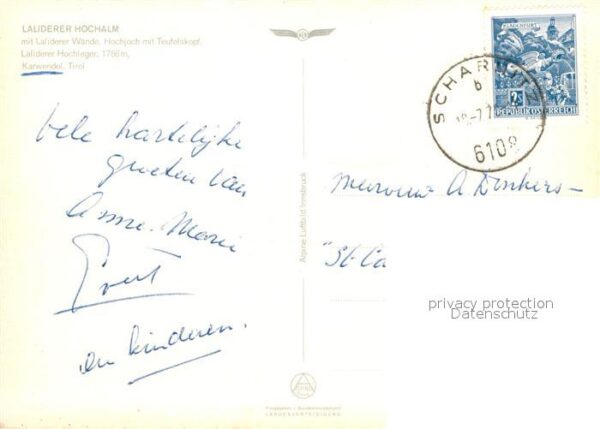 LALIDERER HOCHALM
mit Laliderer Wände, Hochjoch mit Teufelskopf,
Laliderer Hochleger, 1786m,
Karwendel, Tirol
Vele hartelijke
groeten van
Anne-Marie
Evert
en kinderen.
Alpine Luftbild Innsbruck
KLAGENFURT
REPUBLIK ÖSTERREICH
SCHARNITZ
b
6108
Mevrouw A Donkers-
"St-Ca
privacy protection
Datenschutz
LANDESVERTEIDIGUNG